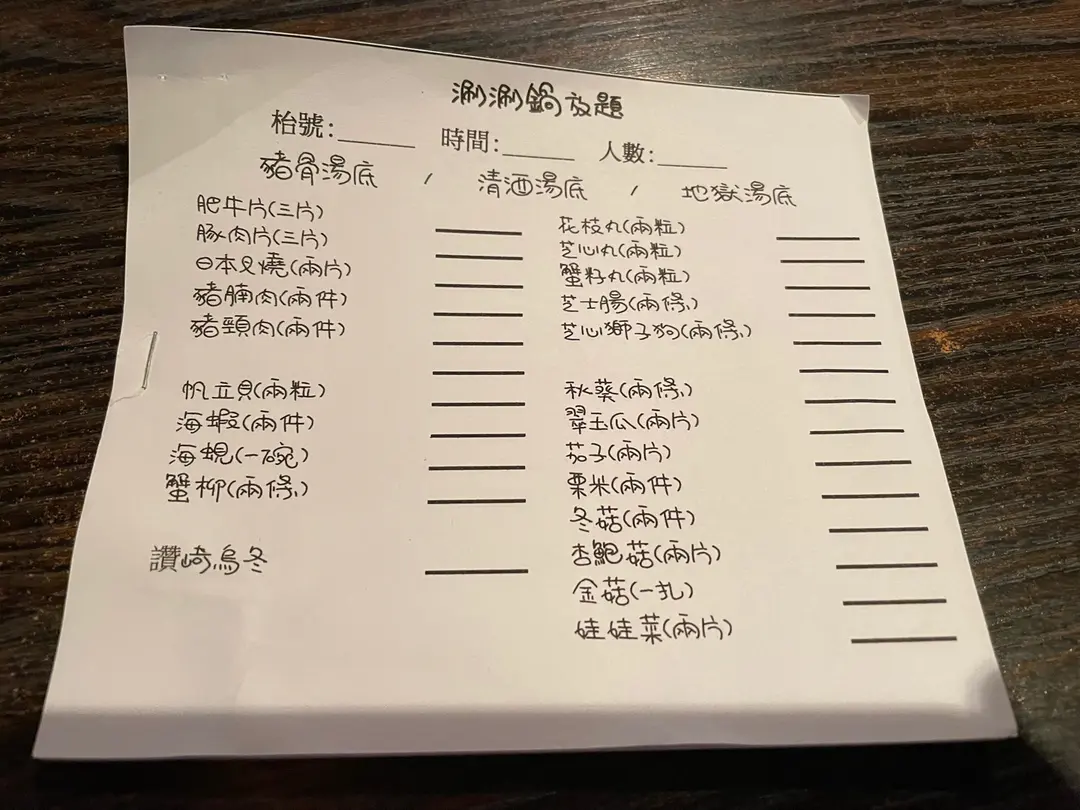 涮涮鍋放題
枱號:______ 時間:______ 人數:______
豬骨湯底 / 清酒湯底 / 地獄湯底
肥牛片(三片)
豚肉片(三片)
日本叉燒(兩片)
豬腩肉(兩件)
豬頸肉(兩件)
帆立貝(兩粒)
海蝦(兩件)
海蜆(一碗)
蟹柳(兩條)
讚崎烏冬
花枝丸(兩粒)
芝心丸(兩粒)
蟹籽丸(兩粒)
芝士腸(兩條)
芝心獅子狗(兩條)
秋葵(兩條)
翠玉瓜(兩片)
茄子(兩片)
粟米(兩件)
冬菇(兩件)
杏鮑菇(兩片)
金菇(一扎)
娃娃菜(兩片)